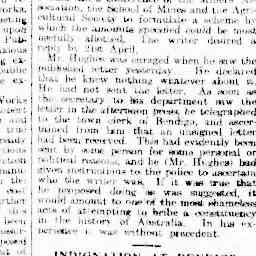 works,
sociation, the School of Mines and the Agri-
cultural Society to formulate a scheme by
which the amounts specified could be most
usefully allotted. The writer desired a
reply by 21st April.
Mr. Hughes was enraged when he saw the
published letter yesterday. He declared
that he knew nothing whatever about it.
He had not sent the letter. As soon as
the secretary to his department saw the
letter in the afternoon press, he telegraphed
to the town clerk of Bendigo, and ascer-
tained from him that an unsigned letter
had been received. This had evidently been
sent by some person for some personal or
political reasons, and he (Mr. Hughes) had
given instructions to the police to ascertain
who the writer was. If it was true that
he proposed doing as was suggested, it
would amount to one of the most shameless
acts of attempting to bribe a constituency
in the history of Australia. In his ex-
perience it was without precedent.